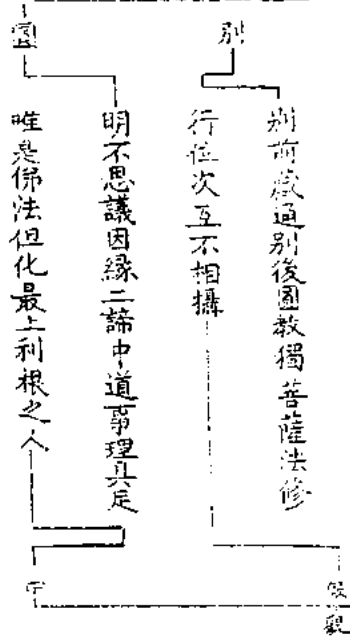 別
別前藏通別後圓教獨菩薩法修
行位次互不相攝
假觀
圓
明不思議因緣二諦中道事理具足
唯是佛法但化最上利根之人
中